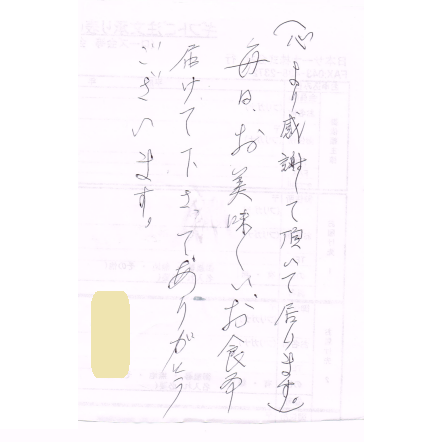 （心より感謝して頂いて居ります。）
毎日、お美味しいお食事
届けて下さってありがとう
ございます。